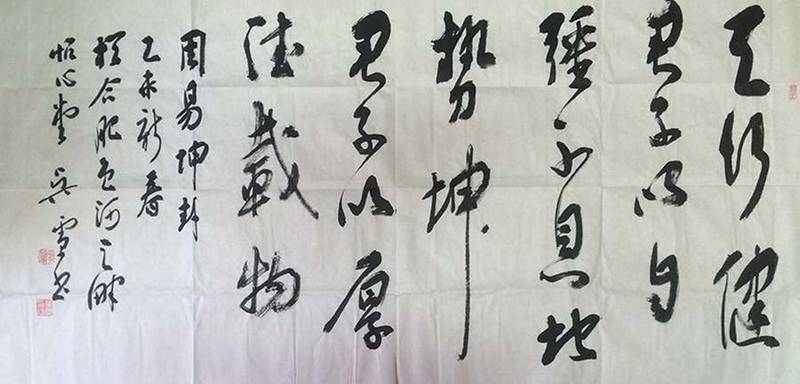 天行健
君子以自
强不息地
势坤
君子以厚
德载物
周易坤卦
乙未新春
於合肥包河之畔
恒心堂吴雪书